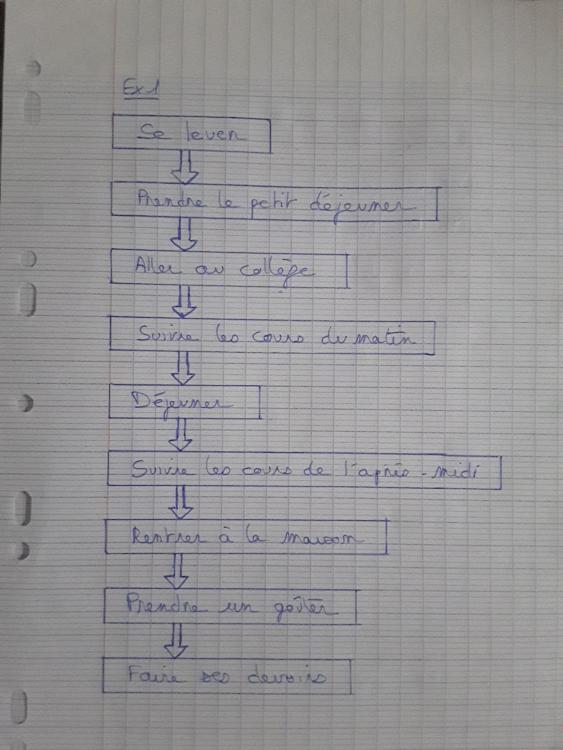 Ex1
Se lever
Prendre le petit déjeuner
Aller au collège
Suivre les cours du matin
Déjeuner
Suivre les cours de l'après-midi
Rentrer à la maison
Prendre un goûter
Faire ses devoirs